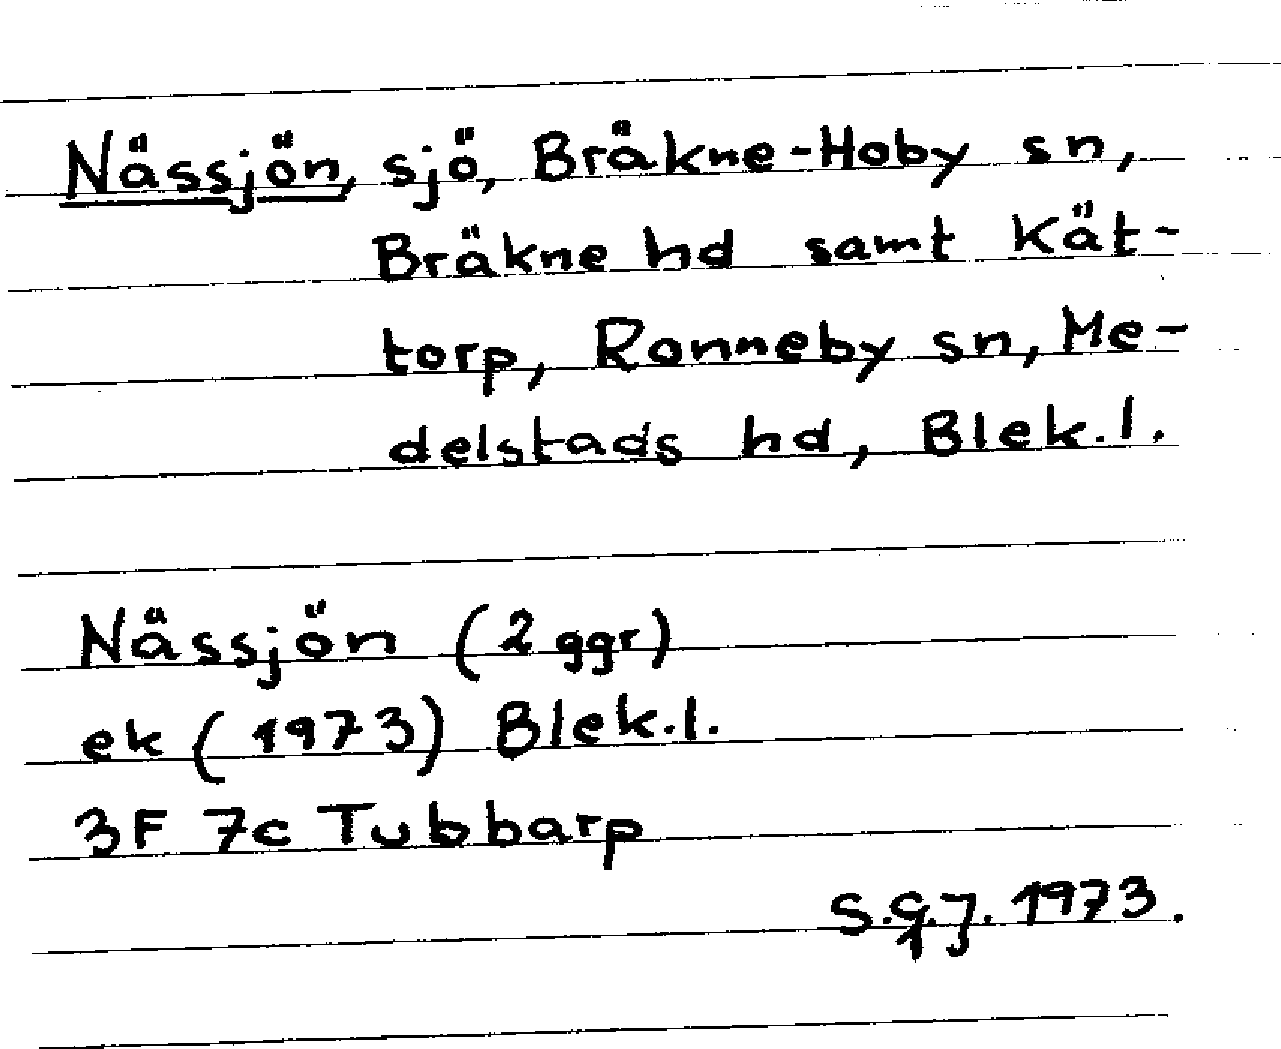 Nässjön, sjö, Bräkne-Hoby sn,
Bräkne hd samt Kät-
torp, Ronneby sn, Me-
delstads hd, Blek.l.
Nässjön (2 ggr)
ek (1973) Blek.l.
3F 7c Tubbarp
S.G.J. 1973.